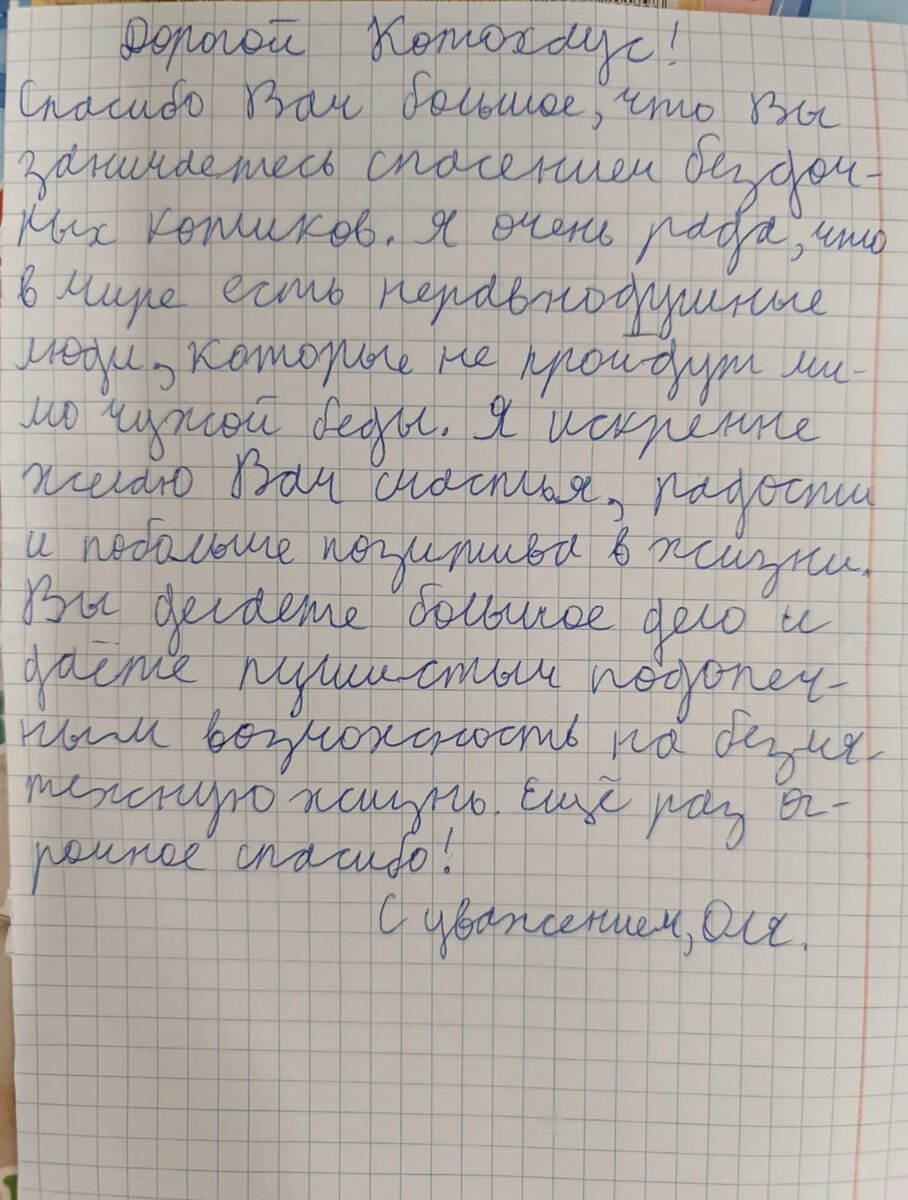 Дорогой Котохаус!
Спасибо Вам большое, что Вы
занимаетесь спасением бездом-
ных котиков. Я очень рада, что
в мире есть неравнодушные
люди, которые не пройдут ми-
мо чужой беды. Я искренне
желаю Вам счастья, радости
и побольше позитива в жизни.
Вы делаете большое дело и
даёте пушистым подопеч-
ным возможность на безмя-
тежную жизнь. Ещё раз ог-
ромное спасибо!
С уважением, Оля.